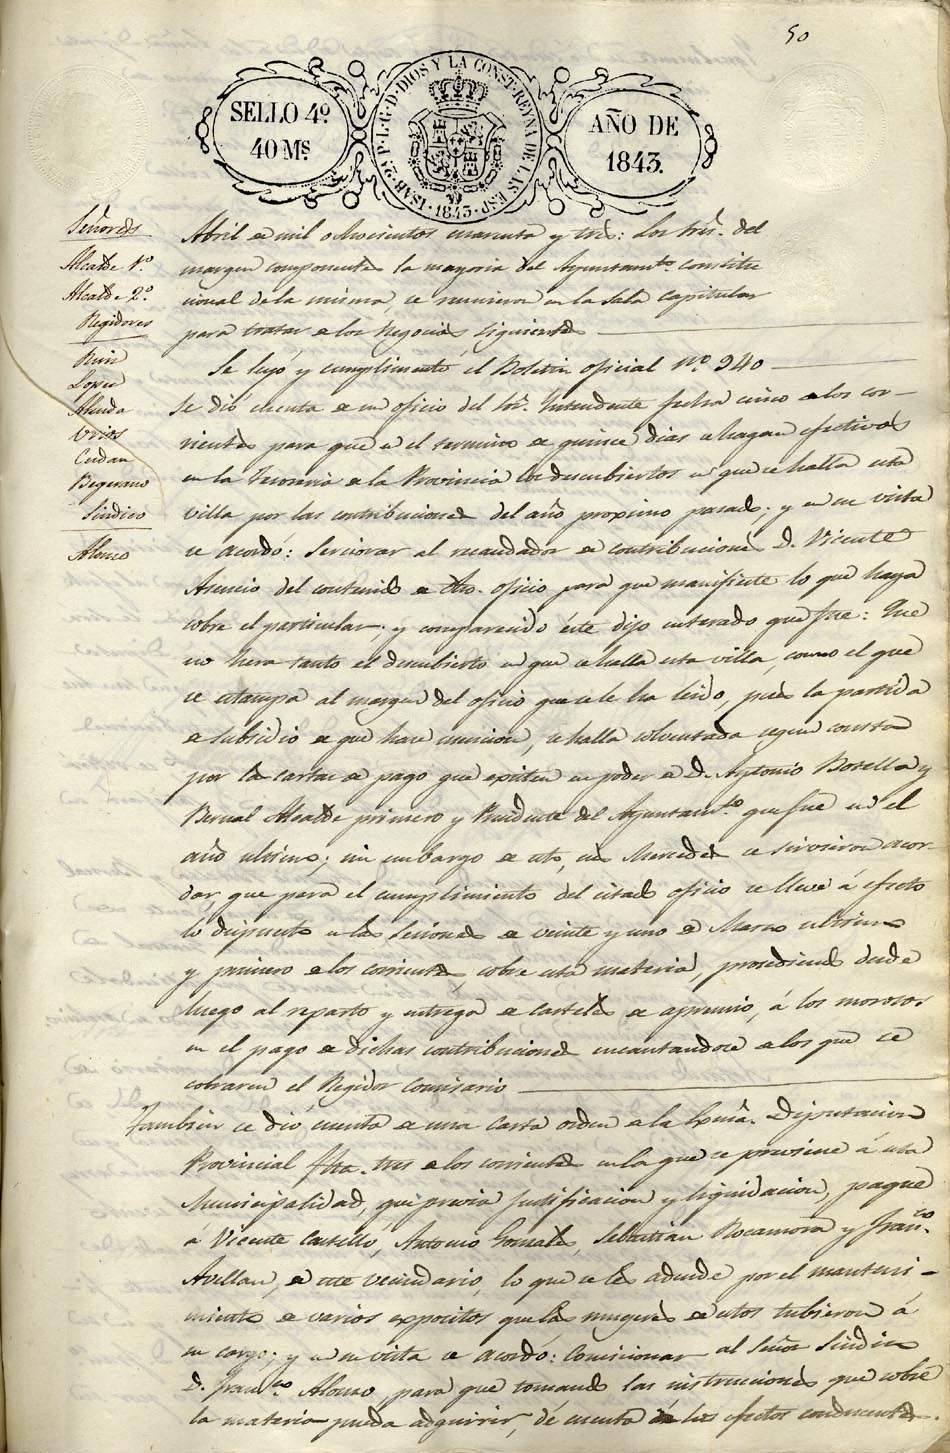 50
SELLO 4º
40 Mˢ
ISAB. 2ª P. L. G. D. DIOS Y LA CONST. REYNA DE LAS ESP. 1843
AÑO DE
1843.
Señores
Alcalde 1.º
Alcalde 2.º
Regidores
Ruiz
Lopez
Aluda
Vrios
Cerdan
Begerano
Sindico
Alonso
Abril de mil ochocientos cuarenta y tres: Los Sres. del
margen componentes la mayoria del Ayuntamto. constitu
cional de la misma, se reunieron en la Sala capitular
para tratar de los Negocios siguientes
Se leyó y cumplimentó el Boletin oficial Nº. 240
Se dió cuenta de un oficio del Sor. Intendente fecha cinco de los cor-
rientes para que en el termino de quince dias se hagan efectivos
en la Tesoreria de la Provincia los descubiertos en que se halla esta
villa por las contribuciones del año proximo pasado; y en su vista
se acordó: Serciorar al recaudador de contribuciones D. Vicente
Asencio del contenido de dho. oficio para que manifieste lo que haya
sobre el particular; y comparecido éste dijo enterado que fue: Que
no hera tanto el descubierto en que se halla esta villa, como el que
se estampa al margen del oficio que se le ha leido, pues la partida
de subsidio de que hace mencion, se halla solventada segun consta
por las cartas de pago que existen en poder de D. Antonio Botella y
Bernal Alcalde primero y Presidente del Ayuntamto. que fue en el
año ultimo; sin embargo de esto, sus Mercedes se sirvieron acor-
dar, que para el cumplimiento del citado oficio se lleve á efecto
lo dispuesto en las Seciones de veinte y uno de Marzo ultimo
y primero de los corrientes, sobre esta materia, prosediendo desde
luego al reparto y entrega de carteles de apremio, á los morosos
en el pago de dichas contribuciones incautandose de los que se
cobraren el Regidor Comisario
Tambien se dió cuenta de una Carta orden de la Exma. Diputacion
Provincial fha. tres de los corrientes en la que se previene á esta
Municipalidad, que previa justificacion y liquidacion, pague
á Vicente Castelló, Antonio Gonzales, Sebastian Rocamora y Franco.
Avellan, de este vecindario, lo que se les adeude por el manteni-
miento de varios expositos que las mugeres de estos tubieron á
su cargo; y en su vista se acordó: Comisionar al Señor Sindico
D. Franco. Alonso, para que tomando las instrucciones que sobre
la materia pueda adquirir, dé cuenta á los efectos conducentes.